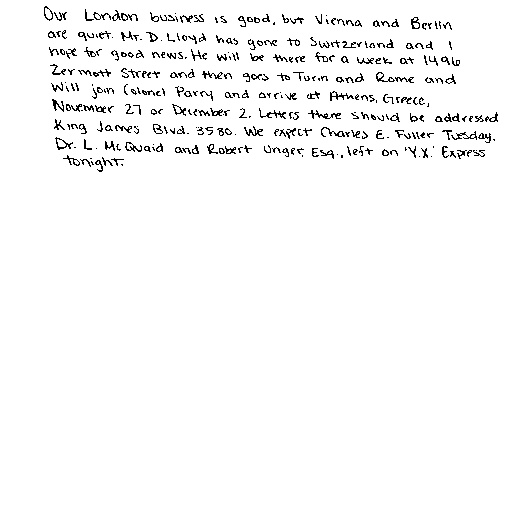 Our London business is good, but Vienna and Berlin
are quiet. Mr. D. Lloyd has gone to Switzerland and I
hope for good news. He will be there for a week at 1496
Zermott Street and then goes to Turin and Rome and
will join Colonel Parry and arrive at Athens, Greece,
November 27 or December 2. Letters there should be addressed
King James Blvd. 3580. We expect Charles E. Fuller Tuesday.
Dr. L. McQuaid and Robert Unger, Esq., left on 'Y.X.' Express
tonight.